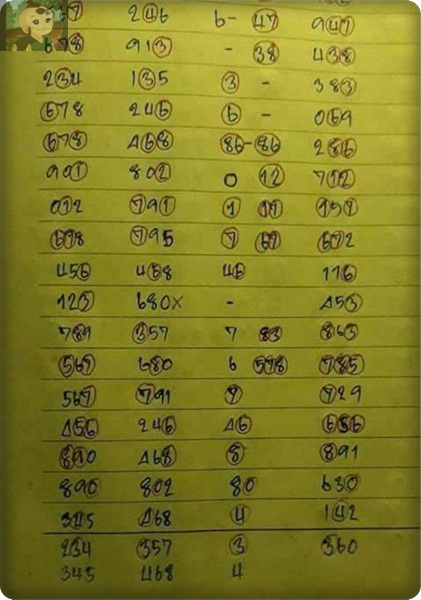 7 246 6- 47 947
678 913 - 38 438
234 135 3 - 383
678 246 6 - 069
678 468 86-86 286
901 802 0 12 712
012 791 1 11 151
678 795 7 67 672
456 468 46 116
123 680x - 453
789 357 7 83 863
567 680 6 578 785
567 791 9 729
456 246 46 656
890 468 8 891
890 802 80 630
345 468 4 142
234 357 3 360
345 468 4